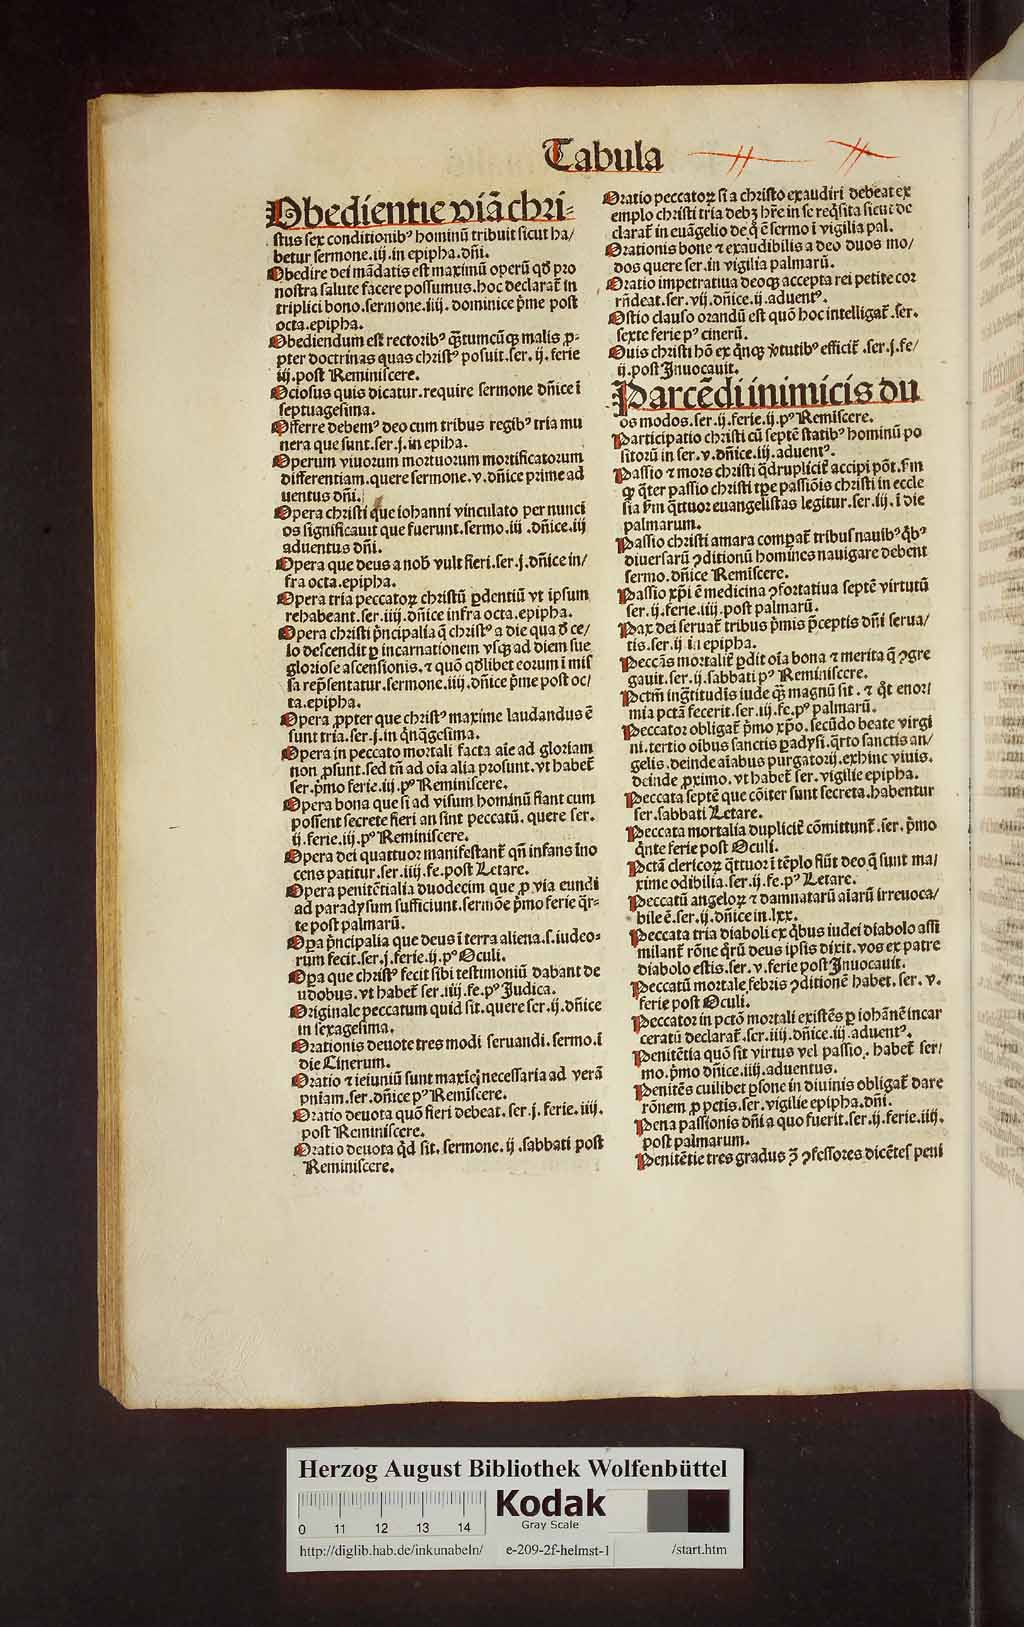 Tabula
Obedientie viã chri⸗
stus sex conditionibꝰ hominũ tribuit sicut ha/
betur sermone.iij.in epipha.dñi.
Obedire dei mãdatis est maximũ operũ qð pro
nostra salute facere possumus.hoc declarat̃ in
triplici bono.sermone.iiij.dominice p̃me post
octa.epipha.
Obediendum est rectoribꝰ q̃tumcũqꝫ malis ꝓ⸗
pter doctrinas quas christꝰ posuit.ser.ij.ferie
iij.post Reminiscere.
Ociosus quis dicatur.require sermone dñice ĩ
septuagesima.
Offerre debemꝰ deo cum tribus regibꝰ tria mu
nera que sunt.ser.j.in epiha.
Operum viuorum mortuorum mortificatorum
differentiam.quere sermone.v.dñice prime ad
uentus dñi.
Opera christi que iohanni vinculato per nunci
os significauit que fuerunt.sermo.iii.dñice.iij
aduentus dñi.
Opera que deus a nob̃ vult fieri.ser.j.dñice in/
fra octa.epipha.
Opera tria peccatoꝝ christũ ꝑdentiũ vt ipsum
rehabeant.ser.iiij.dñice infra octa.epipha.
Opera christi p̃ncipalia q̃ christꝰ a die qua ð ce/
lo descendit ꝑ incarnationem vsqꝫ ad diem sue
gloriose ascensionis.⁊ quõ qðlibet eorum ĩ mis
sa rep̃sentatur.sermone.iiij.dñice p̃me post oc/
ta.epipha.
Opera ꝓpter que christꝰ maxime laudandus ẽ
sunt tria.ser.j.in q̃nq̃gesima.
Opera in peccato mortali facta aĩe ad gloriam
non ꝓsunt.sed tñ ad oĩa alia prosunt.vt habet̃
ser.p̃mo ferie.iij.pꝰ Reminiscere.
Opera bona que si ad visum hominũ fiant cum
possent secrete fieri an sint peccatũ. quere ser.
ij.ferie.iij.pꝰ Reminiscere.
Opera dei quattuor manifestant̃ qñ infans ĩno
cens patitur.ser.iiij.fe.post Letare.
Opera penitẽtialia duodecim que ꝓ via eundi
ad paradysum sufficiunt.sermõe p̃mo ferie q̃r⸗
te post palmarũ.
Oꝑa p̃ncipalia que deus ĩ terra aliena.s.iudeo⸗
rum fecit.ser.j.ferie.ij.pꝰ Oculi.
Oꝑa que christꝰ fecit sibi testimoniũ dabant de
uobus.vt habet̃ ser.iiij.fe.pꝰ Judica.
Originale peccatum quid sit.quere ser.ij.dñice
in sexagesima.
Orationis deuote tres modi seruandi.sermo.ĩ
die Cinerum.
Oratio ⁊ ieiuniũ sunt necessaria ad verã
pñiam.ser.dñice pꝰ Remiscere.
Oratio deuota quõ fieri debeat.ser.j.ferie.iiij.
post Reminiscere.
Oratio deuota q̃d sit.sermone.ij.sabbati post
Reminiscere.
Oratio peccatoꝝ si a christo exaudiri debeat ex
emplo christi tria debꝫ hr̃e in se req̃sita sicut de
clarat̃ in euãgelio de q̃ ẽ sermo ĩ vigilia pal.
Orationis bone ⁊ exaudibilis a deo duos mo/
dos quere ser.in vigilia palmarũ.
Oratio impetratiua deoqꝫ accepta rei petite cor
rñdeat.ser.vij.dñice.ij.aduentꝰ.
Ostio clauso orandũ est quõ hoc intelligat̃.ser.
sexte ferie pꝰ cinerũ.
Ouis christi hõ ex q̃nqꝫ v̾tutibꝰ efficit̃.ser.j.fe/
ij.post Jnuocauit.
Parcẽdi inimicis du
os modos.ser.ij.ferie.ij.pꝰ Remiscere.
Participatio christi cũ septẽ statibꝰ hominũ po
sitorũ in ser.v.dñice.iij.aduentꝰ.
Passio ⁊ mors christi q̃druplicit̃ accipi põt.ẜm
qꝫ q̃ter passio christi tp̃e passiõis christi in eccle
sia ẜm q̃ttuor euangelistas legitur.ser.iij.ĩ die
palmarum.
Passio christi amara comparat̃ tribus nauibꝰ q̃bꝰ
diuersarũ ꝯditionũ homines nauigare debent
sermo.dñice Remiscere.
Passio xp̃i ẽ medicina ꝯfortatiua septẽ virtutũ
ser.ij.ferie.iiij.post palmarũ.
Pax dei seruat̃ tribus p̃mis p̃ceptis dñi serua/
tis.ser.ij in epipha.
Peccãs mortalit̃ ꝑdit oĩa bona ⁊ merita q̃ ꝯgre
gauit.ser.ij.sabbati pꝰ Reminiscere.
Pctm̃ ingr̃titudis iude q̃ꝫ magnũ sit.⁊ q̃t enor/
mia pctã fecerit.ser.iij.fe.pꝰ palmarũ.
Peccator obligat̃ p̃mo xp̃o.secũdo beate virgi
ni.tertio oĩbus sanctis ꝑadysi.q̃rto sanctis an/
gelis.deinde aĩabus purgatorij.exhinc viuis.
deinde ꝓximo.vt habet̃ ser.vigilie epipha.
Peccata septẽ que cõiter sunt secreta.habentur
ser.sabbati Letare.
Peccata mortalia duplicit̃ cõmittunt̃.ser.p̃mo
q̃nte ferie post Oculi.
Pctã clericoꝝ q̃ttuor ĩ tẽplo fiũt deo q̃ sunt ma/
xime odibilia.ser.ij.fe.pꝰ Letare.
Peccatũ angeloꝝ ⁊ damnatarũ aĩarũ irreuoca/
bile ẽ.ser.ij.dñice in.lxx.
Peccata tria diaboli ex q̃bus iudei diabolo assi
milant̃ rõne q̃rũ deus ipsis dixit.vos ex patre
diabolo estis.ser.v.ferie post Jnuocauit.
Peccatũ mortale febris ꝯditionẽ habet.ser.v.
ferie post Oculi.
Peccator in pctõ mortali existẽs ꝑ iohãnẽ incar
ceratũ declarat̃.ser.iiij.dñice.iij.aduentꝰ.
Penitẽtia quõ sit virtus vel passio.habet̃ ser/
mo.p̃mo dñice.iiij.aduentus.
Penitẽs cuilibet ꝑsone in diuinis obligat̃ dare
rõnem ꝓ pctis.ser.vigilie epipha.dñi.
Pena passionis dñi a quo fuerit.ser.ij.ferie.iiij.
post palmarum.
Penitẽtie tres gradus ꝯ̃ ꝯfessores dicẽtes peni
Herzog August Bibliothek Wolfenbüttel
0 11 12 13 14
Kodak
Gray Scale
http://diglib.hab.de/inkunabeln/ e-209-2f-helmst-1 /start.htm